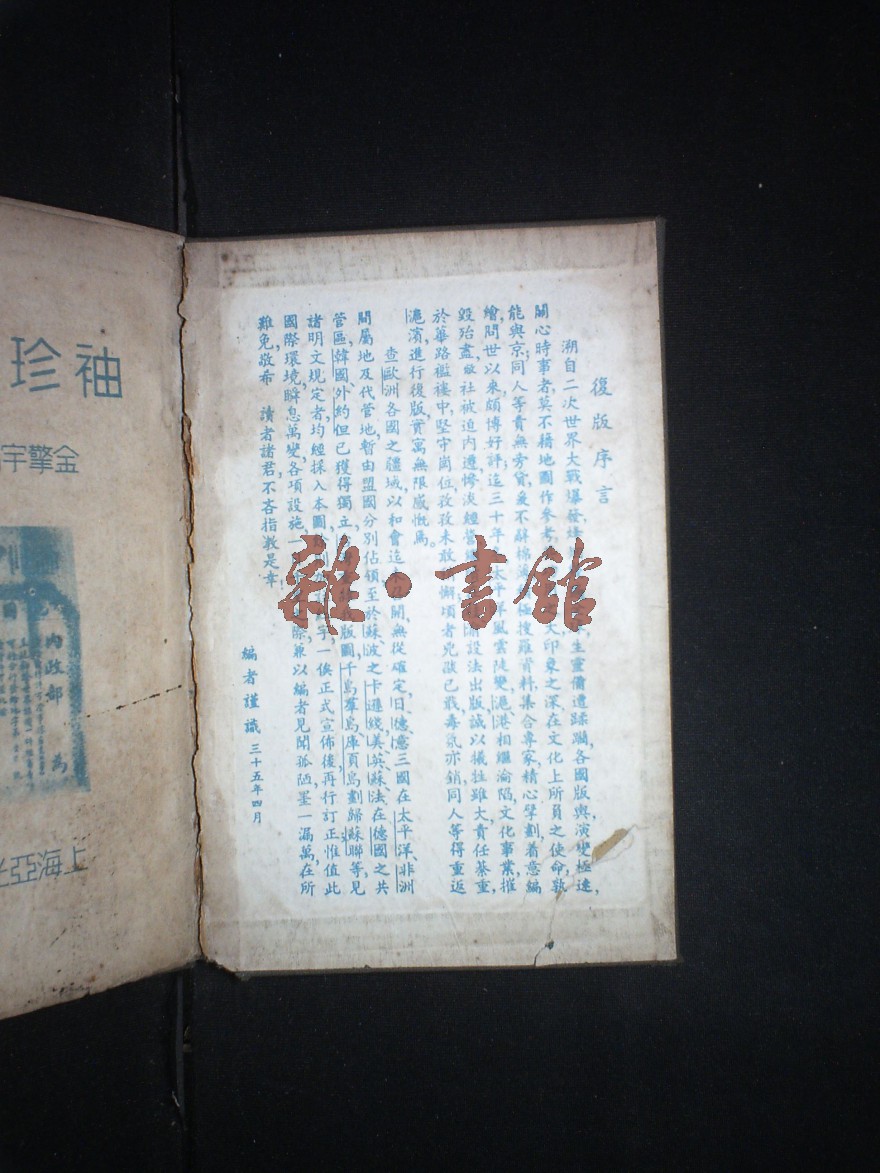 復版序言
溯自二次世界大戰爆發,生靈備遭蹂躪,各國版輿,演變極速,
關心時事者莫不藉地圖作參考,印象之深在文化上所負之使命孰
能與京,同人等責無旁貸,爰不辭棉薄極搜羅資料,集合專家,精心擘劃,着意編
繪,問世以來頗博好評,迄三十年太平風雲陡變,滬港相繼淪陷,文化事業,摧
毀殆盡,敝社被迫内遷,慘淡經營設法出版,誠以犧牲雖大,責任綦重,
於蓽路襤褸中,堅守崗位,孜孜未敢懈,頃者兇燄已戢,毒氛亦銷,同人等得重返
滬濱,進行復版,實寓無限感慨焉。
查歐洲各國之疆域,以和會迄未開,無從確定,日、德、意三國在太平洋、非洲
間屬地及代管地,暫由盟國分別佔領,至於蘇波之卡遜綫,美、英、蘇、法在德國之共
管區,韓國、外約但已獲得獨立,版圖,千島羣島、庫頁島劃歸蘇聯等,見
諸明文規定者,均經採入本圖,一俟正式宣佈後,再行訂正,惟值此
國際環境,瞬息萬變,各項設施,一際,兼以編者見聞孤陋,墨一漏萬,在所
難免,敬希 讀者諸君,不吝指教是幸
編者謹識 三十五年四月
袖珍
金擎宇
内政部 為
上海亞
雜·書館